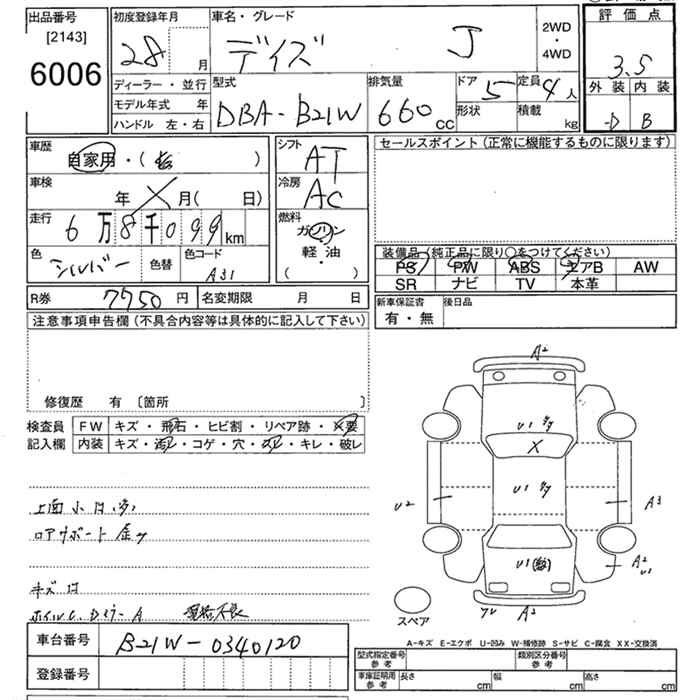 出品番号
[2143]
6006
初度登録年月
28 月
ディーラー・並行
モデル年式 年
ハンドル 左・右
車名・グレード
デイズ J
2WD
・
4WD
型式
DBA-B21W
排気量
660 cc
ドア 5
形状
定員 4 人
積載 kg
評価点
3.5
外装 内装
D B
車歴
自家用・( )
車検
年 月( 日)
走行
6万8千099 km
色
シルバー
色替
色コード
A31
シフト
AT
冷房
AC
燃料
ガソリン
・
軽・油
( )
セールスポイント(正常に機能するものに限ります)
装備品(純正品に限り○をつけてください)
PS PW ABS エアB AW
SR ナビ TV 本革
新車保証書
有・無
後日品
R券 7750 円
名変期限 月 日
注意事項申告欄(不具合内容等は具体的に記入して下さい)
修復歴 有 [箇所 ]
検査員
記入欄
FW キズ・飛石・ヒビ割・リペア跡・X要
内装 キズ・汚レ・コゲ・穴・スレ・キレ・破レ
上面小
ロアサポート
キズ
A
A2
U1
X
U1
U2
A3
A2
U1
U1
A2
スペア
A-キズ E-エクボ U-凹み W-補修跡 S-サビ C-腐食 XX-交換済
車台番号 B21W-0340120
登録番号
型式指定番号
参考
類別区分番号
参考
車庫証明用
参考
長さ cm 幅 cm 高さ cm